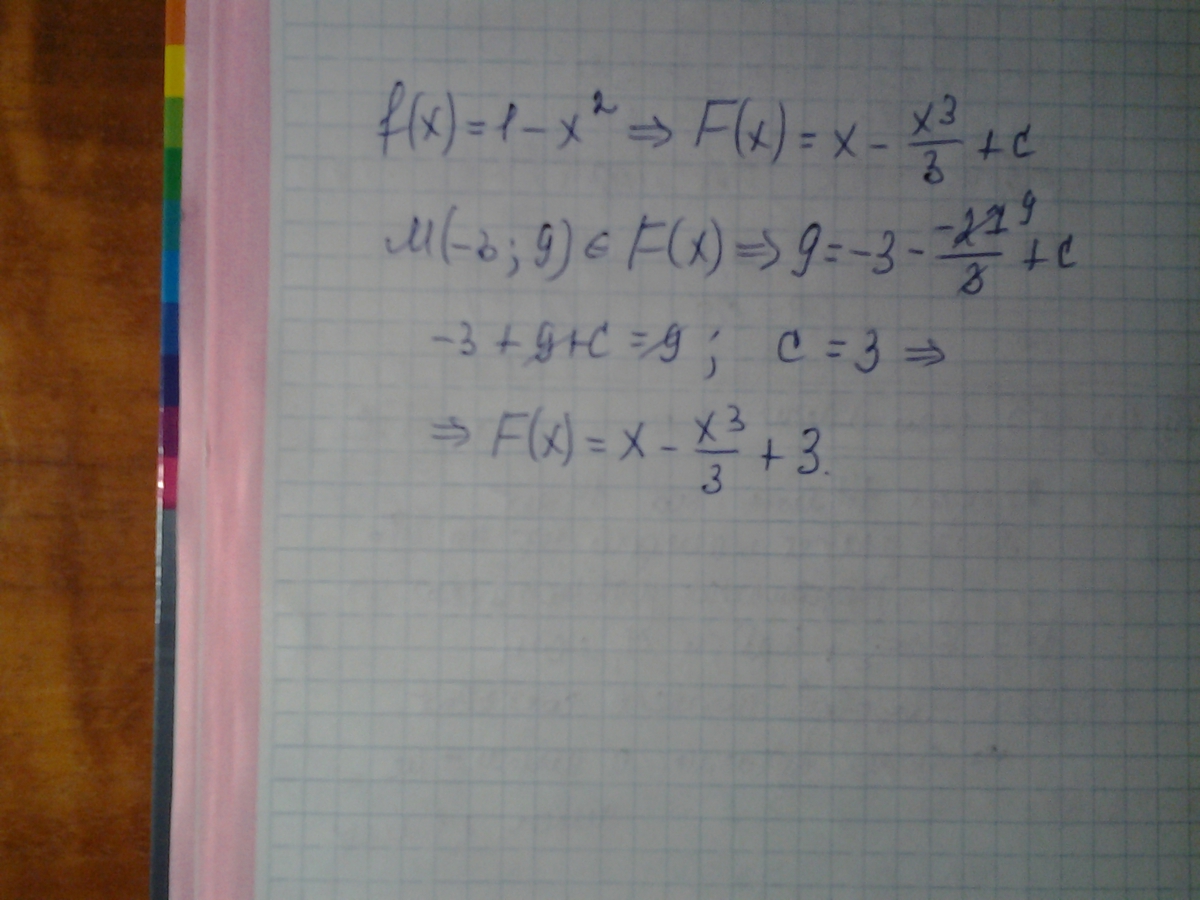 f(x) = 1 - x² ⇒ F(x) = x - x³/3 + c
M(-3; 9) ∈ F(x) ⇒ 9 = -3 - -27 9/3 + c
-3 + 9 + c = 9; c = 3 ⇒
⇒ F(x) = x - x³/3 + 3.